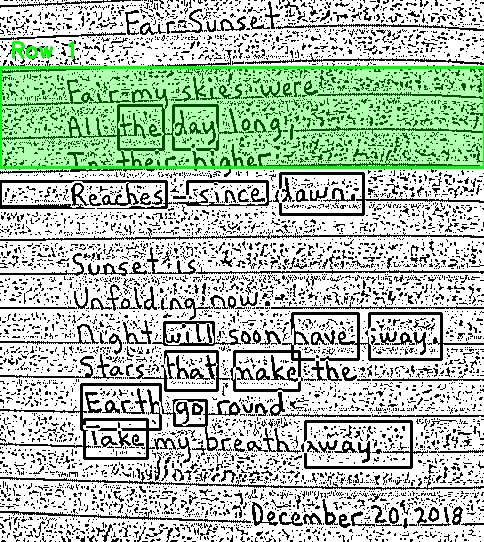 Fair Sunset
Row 1
Fair my skies were
All the day long,
In their higher
Reaches - since dawn.
Sunset is
Unfolding now.
Night will soon have sway.
Stars that make the
Earth go round
Take my breath away.
December 20, 2018